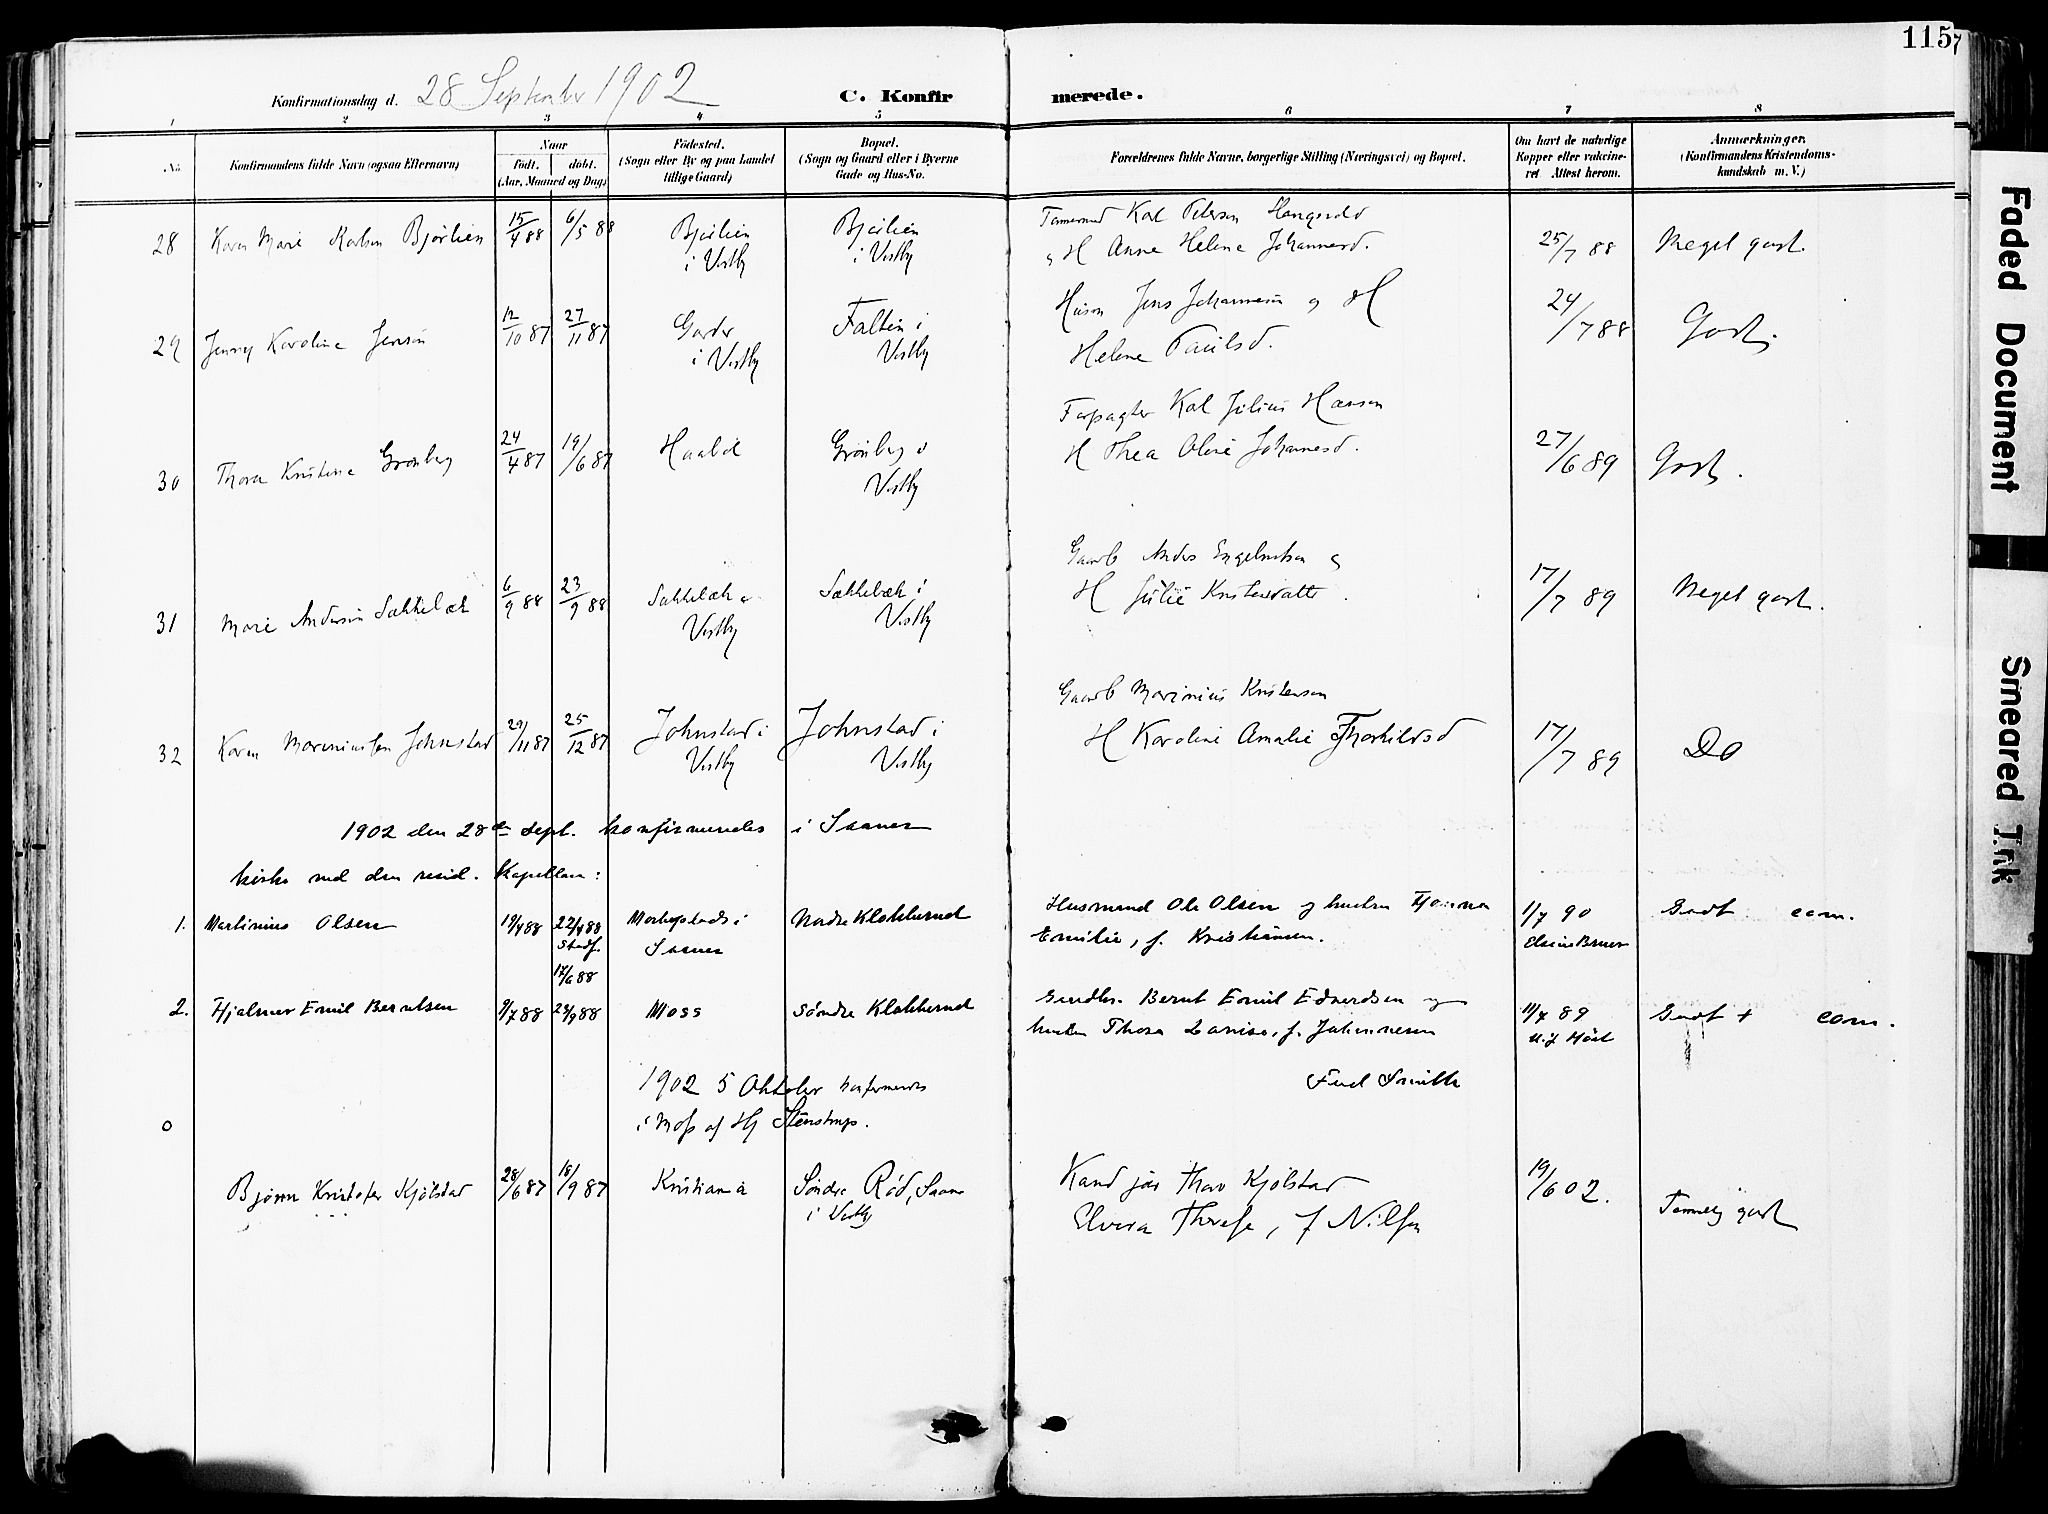 115
Konfirmationsdag d. 28 September 1902
C. Konfirmerede.
1 2 3 4 5 6 7 8
No.
Konfirmandens fulde Navn (ogsaa Efternavn)
Naar
født. døbt.
(Aar, Maaned og Dag)
Fødested.
(Sogn eller By og paa Landet
tillige Gaard)
Bopæl.
(Sogn og Gaard eller i Byerne
Gade og Hus-No.
Forældrenes fulde Navne, borgerlige Stilling (Næringsvei) og Bopæl.
Om havt de naturlige
Kopper eller vakcine-
ret Attest herom.
Anmærkninger.
(Konfirmandens Kristendoms-
kundskab m. V.)
28 Karen Marie Karlsen Bjørlien 15/4 88 6/5 88 Bjørlien i Vestby Bjørlien i Vestby Karl Petersen
H Anne Helene Johannesd. 25/7 88 Meget godt.
29 Jenny Karoline Jensen 12/10 87 27/11 87 Garder i Vestby Faltin i Vestby Husm Jens Johannesen og H
Helene Paulsd. 24/7 88 Godt.
30 Thora Kristine Grønberg 24/4 87 19/6 87 Haabøl Grønberg i Vestby Forpagter Karl Julius Hansen
H Thea Oline Johannesd. 27/6 89 Godt.
31 Marie Andersen Sækkelæk 6/9 88 23/9 88 Sækkelæk Vestby Sækkelæk i Vestby Gaardb Anders Engebretsen og
H Julie Kristensdatter. 17/7 89 Meget godt.
32 Karen Mariniussen Johnstad 29/11 87 25/12 87 Johnstad i Vestby Johnstad i Vestby Gaardb Marinius Kristensen
H Karoline Amalie Thorkildsd 17/7 89 Do
1902 den 28de Sept. konfirmeredes i Saaner
kirke ved den resid. Kapellan:
1. Martinius Olsen 19/4 88 22/4 88 Stadf. 17/6 88 i Saaner Nordre Klokkerud Husmand Ole Olsen og hustru
Emilie, f. Kristiansen. 1/7 90 Godt com.
2. Hjalmar Emil Berntsen 9/7 88 24/9 88 Moss Søndre Klokkerud Bernt Emil Edvardsen og
hustru Thora Lovise, f. Johannesen 11/7 89 Godt + com.
1902 5 Oktober konfirmeres
i Moss af Hj Stenstrup.
Smith
0
Bjørn Kristofer Kjølstad 28/6 87 18/9 87 Kristiania Søndre Rød, Saaner i Vestby Kand jur Thor Kjølstad
Elvira Therese, f Nilsen 19/6 02. Temmelig godt
Faded Document
Smeared Ink